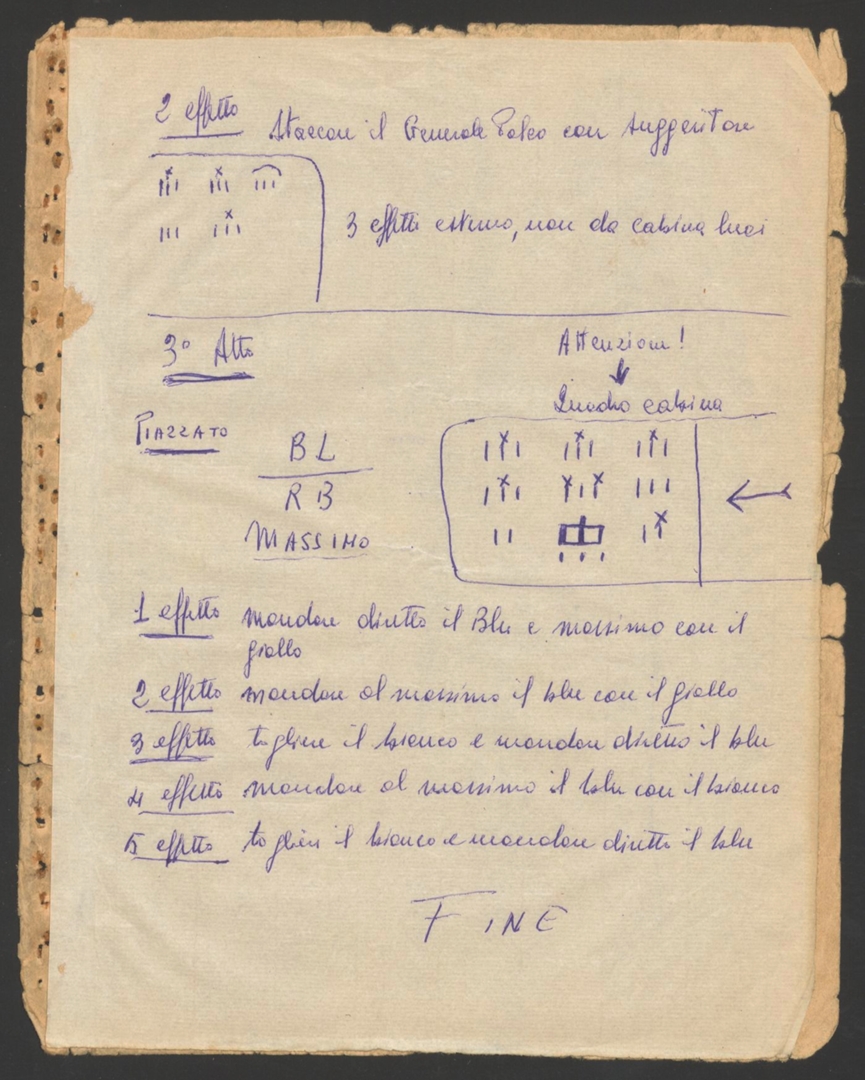 2 effetto Staccare il Generale Palco con suggeritore
3 effetti esterno, non da cabina luci
3° Atto
Attenzione!
Quadro cabina
PIAZZATO
BL
RB
MASSIMO
1 effetto mandare diretto il Blu e massimo con il
giallo
2 effetto mandare al massimo il blu con il giallo
3 effetto togliere il bianco e mandare diretto il blu
4 effetto mandare al massimo il blu con il bianco
5 effetto togliere il bianco e mandare diretto il blu
FINE